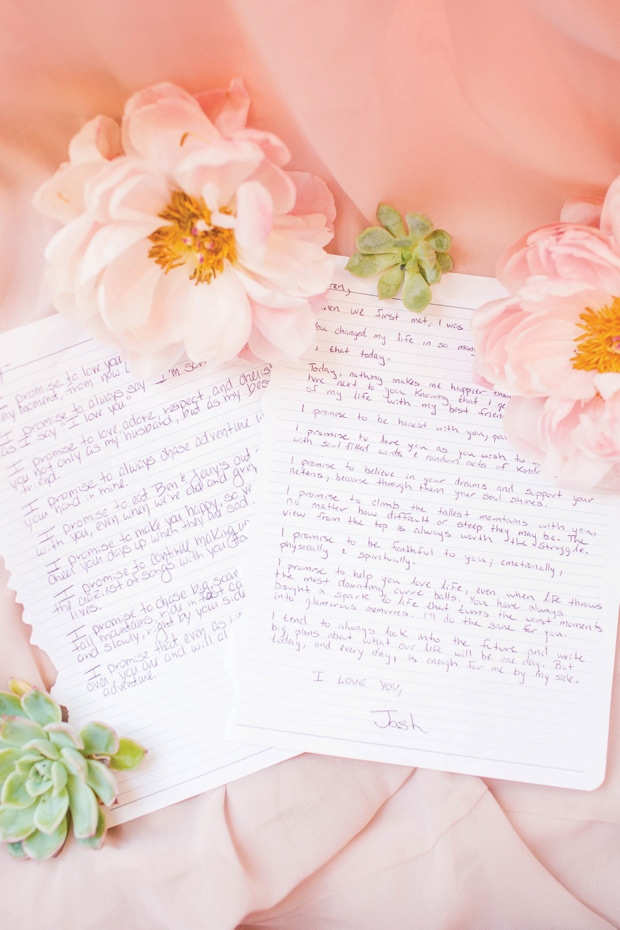 I promise to love you
my husband, from now
I promise to always say
as I say "I love you"
I promise to love, adore, respect, and cherish
you not only as my husband, but as my best
friend.
I promise to always chase adventure
your hand in mine.
I promise to eat Ben & Jerry's out
with you, even when we're old and grey
I promise to make you happy, so
cheer you up when they sad
I promise to continue making
the cheesiest of songs with you
lives.
I promise to chase big, scary
tall mountains, ride in fast
and slowly, right by your side
I promise that even as
over you and will al
adventure.
en,
en we first met, I was
You changed my life in so man
, that today.
Today, nothing makes me happier than
here next to you knowing that I ge
of my life with my best frien
I promise to be honest with you,
I promise to love you as you wish to
with soul filled words & random acts of kind
I promise to believe in your dreams and support your
actions, because through them your soul shines.
I promise to climb the tallest mountains with you,
no matter how difficult or steep they may be. The
view from the top is always worth the struggle.
I promise to be faithful to you; emotionally,
physically & spiritually.
I promise to help you love life, even when life throws
the most daunting curve balls. You have always
bought a spark to life that turns the worst moments
into glamorous memories. I'll do the same for you.
I tend to always look into the future and write
big plans about what our life will be one day. But
today, and every day, is enough for me by my side.
I LOVE YOU,
Josh